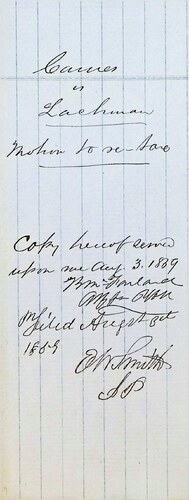 Carnes
vs
Lachman
Motion to re-tax
Copy hereof served
upon me Aug. 3. 1859
filed August 3d
1859
E W Smith